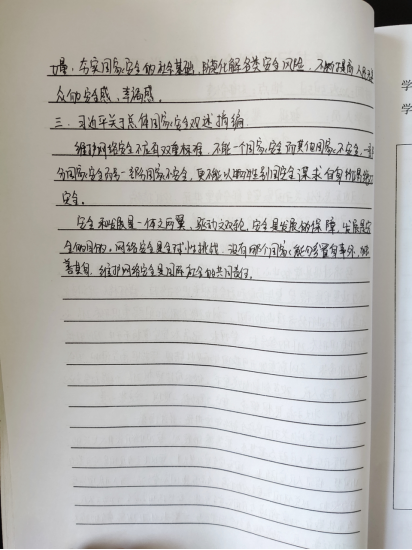 力量，夯实国家安全的社会基础，防范化解各类安全风险，不断提高人民群
众的安全感、幸福感。
三、习近平关于总体国家安全观论述摘编
维护网络安全不应有双重标准，不能一个国家安全而其他国家不安全，一部
分国家安全而另一部分国家不安全，更不能以牺牲别国安全谋求自身所谓绝对
安全。
安全和发展是一体之两翼、驱动之双轮，安全是发展的保障，发展是安
全的目的，网络安全是全球性挑战，没有哪个国家能够置身事外、独
善其身，维护网络安全是国际社会的共同责任。
学
学